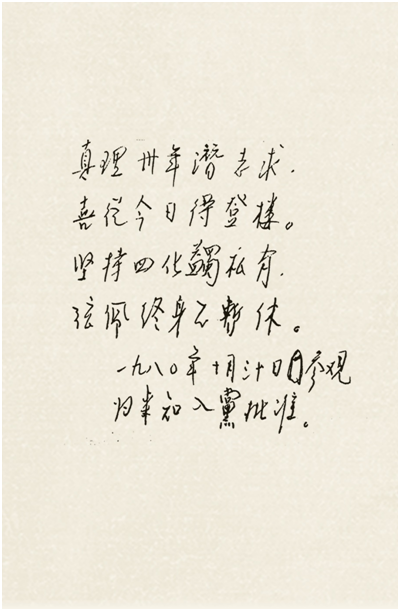 真理卅年潜志求，
喜从今日得登楼。
坚持四化蠲私有，
弦佩终身不暂休。
一九八〇年十月三十日参观
归来知入党批准。